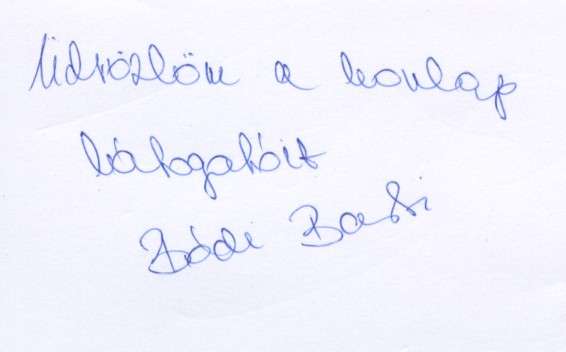 Üdvözlöm a honlap
látogatóit
Bódi